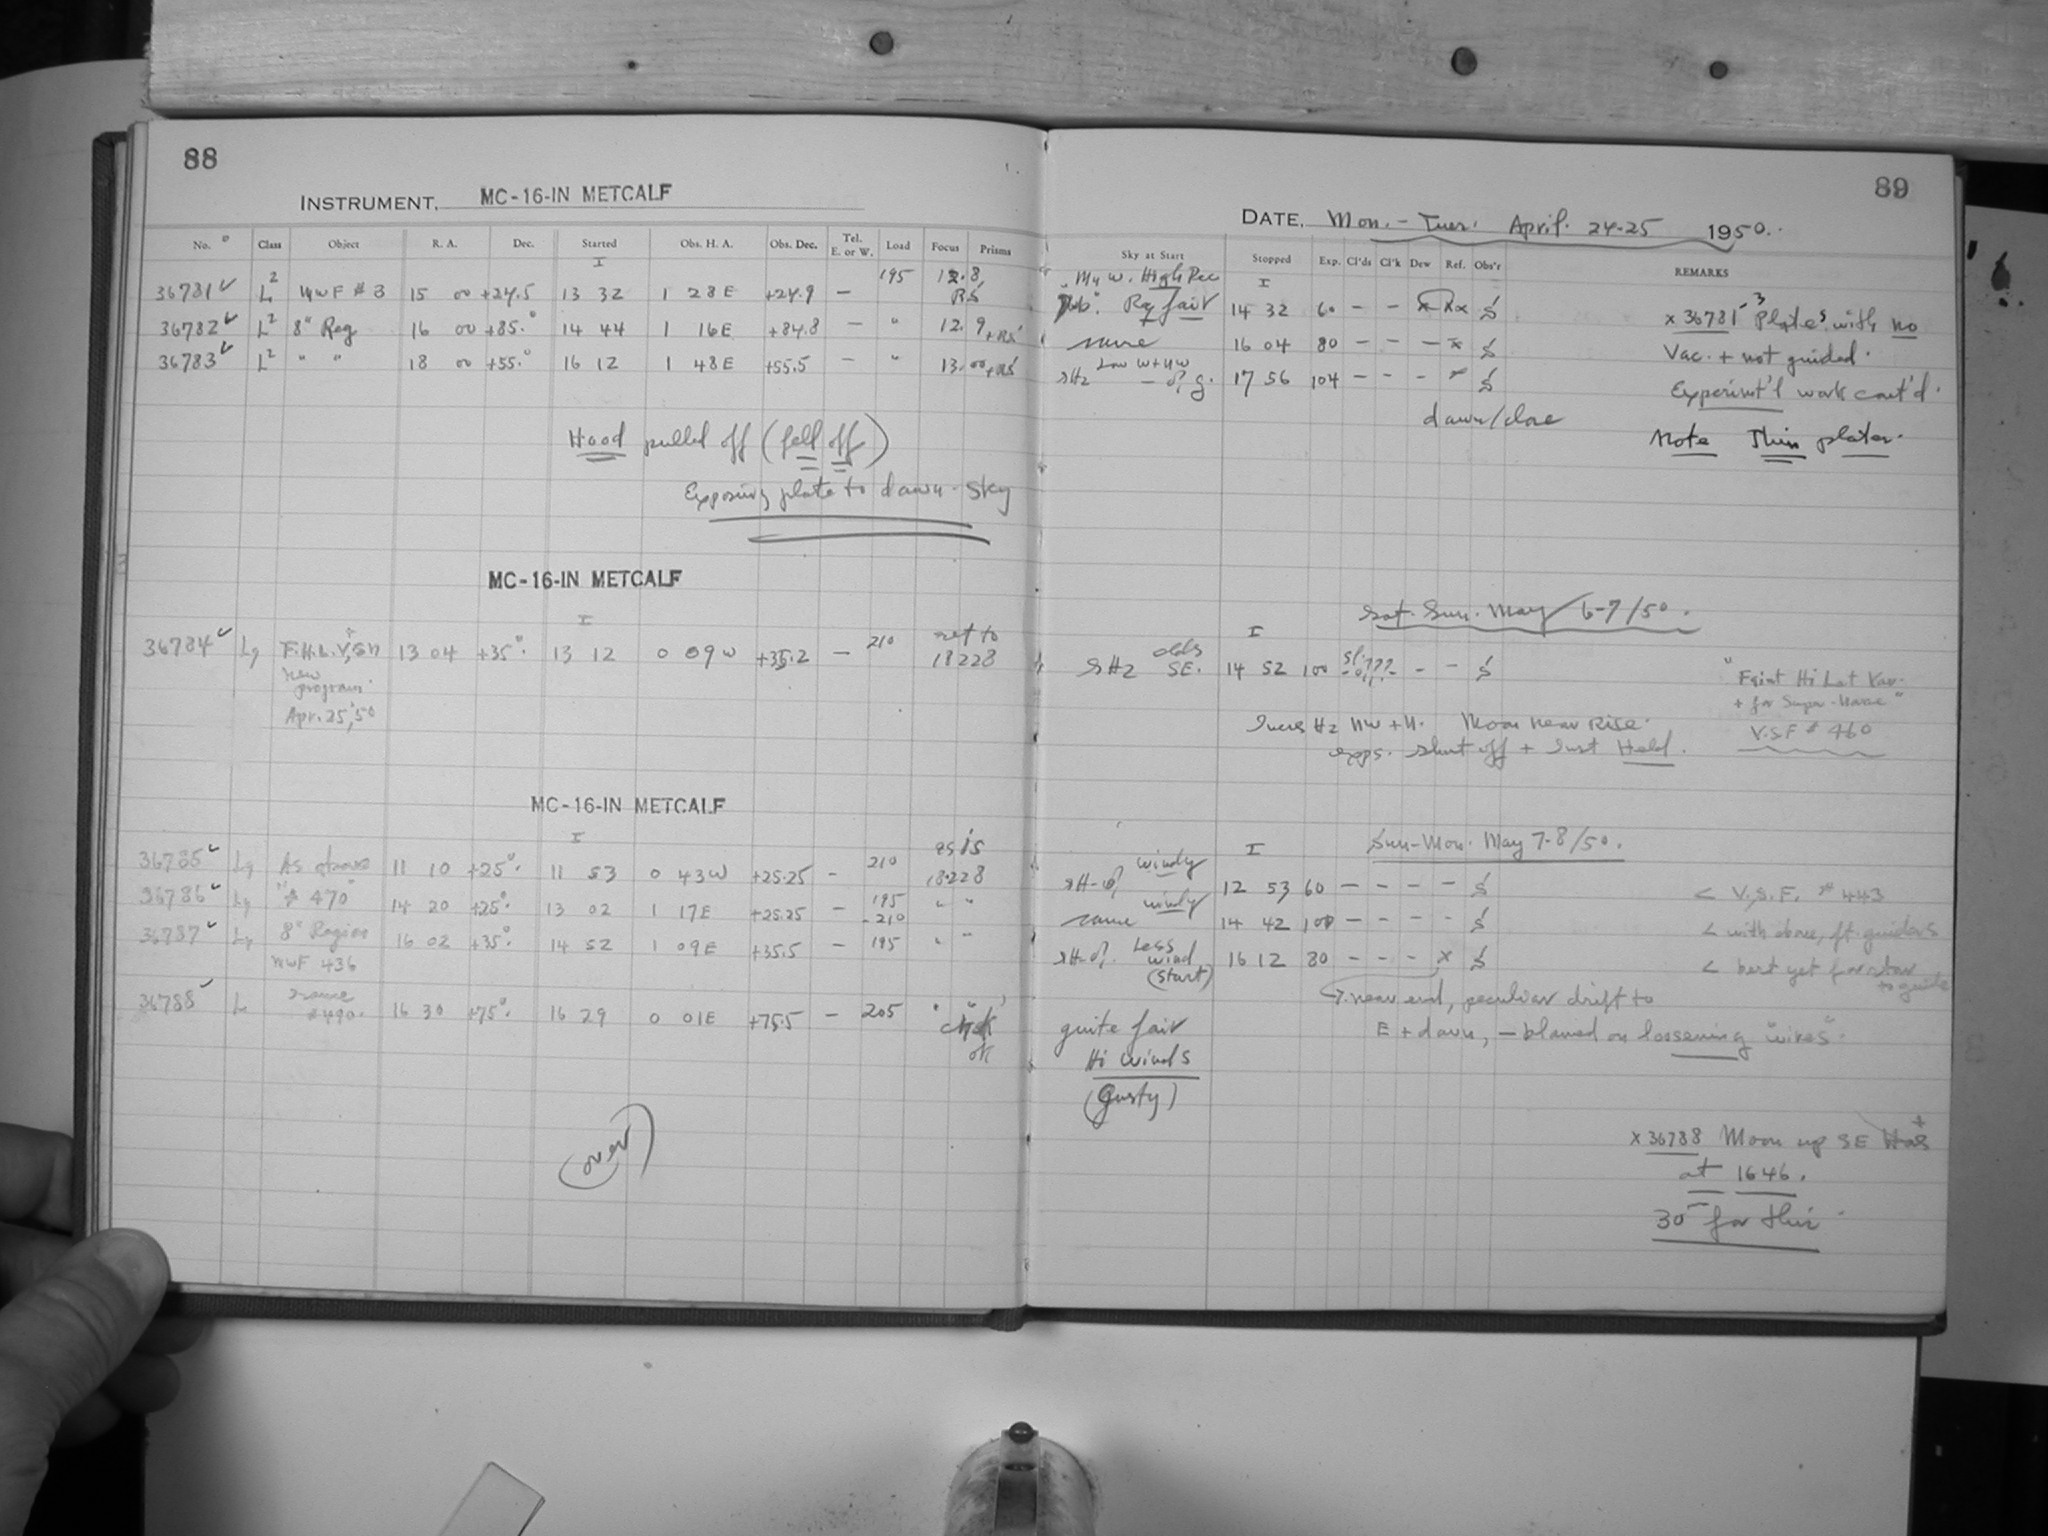 88
INSTRUMENT, MC-16-IN METCALF
No. Class Object R. A. Dec. Started Obs. H. A. Obs. Dec. Tel. E. or W. Load Focus Prisms
36781 L2 MWF # 3 15 00 +24.5 13 32 1 28 E +24.9 — 195 12.8
36782 L2 8" Reg 16 00 +85.° 14 44 1 16 E +84.8 — " 12.9
36783 L2 " " 18 00 +55.° 16 12 1 48 E +55.5 — " 13.00
Hood pulled off (fell off)
Exposing plate to dawn-sky
MC-16-IN METCALF
36784 Lg F.H.L.V,+SN 13 04 +35° 13 12 0 09 W +35.2 — 210 ret to 18228
new program
Apr. 25,'50
MC-16-IN METCALF
36785 Lg As above 11 10 +25° 11 53 0 43 W +25.25 — 210 as is 18.228
36786 Lg "# 470" 14 20 +25° 13 02 1 17 E +25.25 — 195 -210 " "
36787 Lg 8" Region 16 02 +35° 14 52 1 09 E +35.5 — 195 " "
MWF 436
36788 L same #490. 16 30 +75° 16 29 0 01 E +75.5 — 205 " " chek ok
(over)
89
DATE, Mon.-Tues. April. 24-25 1950..
Sky at Start Stopped Exp. Cl'ds Cl'k Dew Ref. Obs'r REMARKS
High fair 14 32 60 — — x
same 16 04 80 — — —
Low W+NW
sHz 17 56 104 — — -
dawn/close
x 36781-3 Plates with no
Vac. + not guided.
Experimt'l work cont'd.
Note Thin plates.
Sat-Sun. May 6-7/50.
sHz clds SE. 14 52 100 sl. ??? - -
Incrs Hz NW + N. Moon near rise.
exps. shut off + Inst Held.
"Faint Hi Lat Var.
+ for Super-Novae"
V.S.F # 460
Sun-Mon. May 7-8/50.
windy 12 53 60 — — — —
same windy 14 42 100 — - - -
Less wind (start) 16 12 80 — - - x
< V.S.F. # 443
< with above, ft. guiders
< best yet for star to guide
near end, peculiar drift to
E + dawn, — blamed on loosening "wires".
quite fair
Hi winds
(Gusty)
x 36788 Moon up SE
at 1646.
30- for this